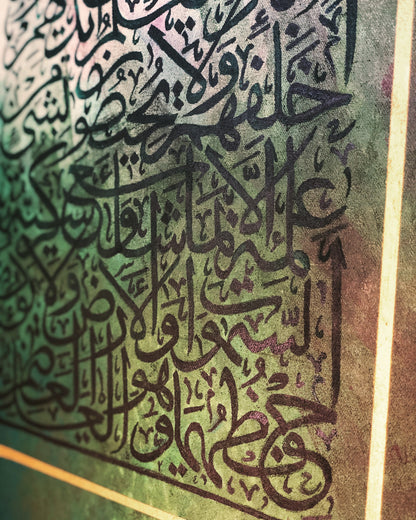 أيديهم
خلفهم ولا يحيطون بشيء
علمه إلا بما شاء وسع كرسيه
السموات والأرض ولا يؤ
حفظهما وهو العلي العظيم